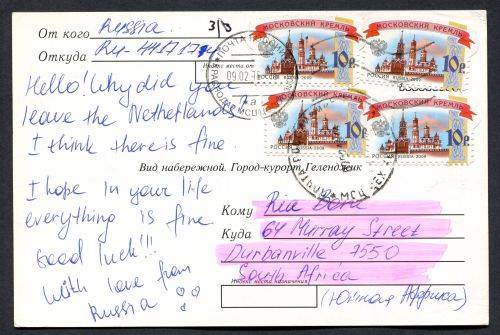 От кого Russia. 3/8
Откуда RU-4417174
МОСКОВСКИЙ КРЕМЛЬ
МОСКОВСКИЙ КРЕМЛЬ
10р
10р
РОССИЯ RUSSIA 2009
РОССИЯ RUSSIA 2009
МОСКОВСКИЙ КРЕМЛЬ
МОСКОВСКИЙ КРЕМЛЬ
10р
10р
РОССИЯ RUSSIA 2009
РОССИЯ RUSSIA 2009
Индекс места от
ПОЧТА
09.02.1
Hello! Why did you
leave the Netherlands
I think there is fine.
Вид набережной. Город-курорт Геленджик
I hope in your life
everything is fine
Good luck!!!
With love from
Russia
Кому Ria Dora
Куда 64 Murray Street
Durbanville 7550
South Africa
Индекс места назначения
(Южная Африка)